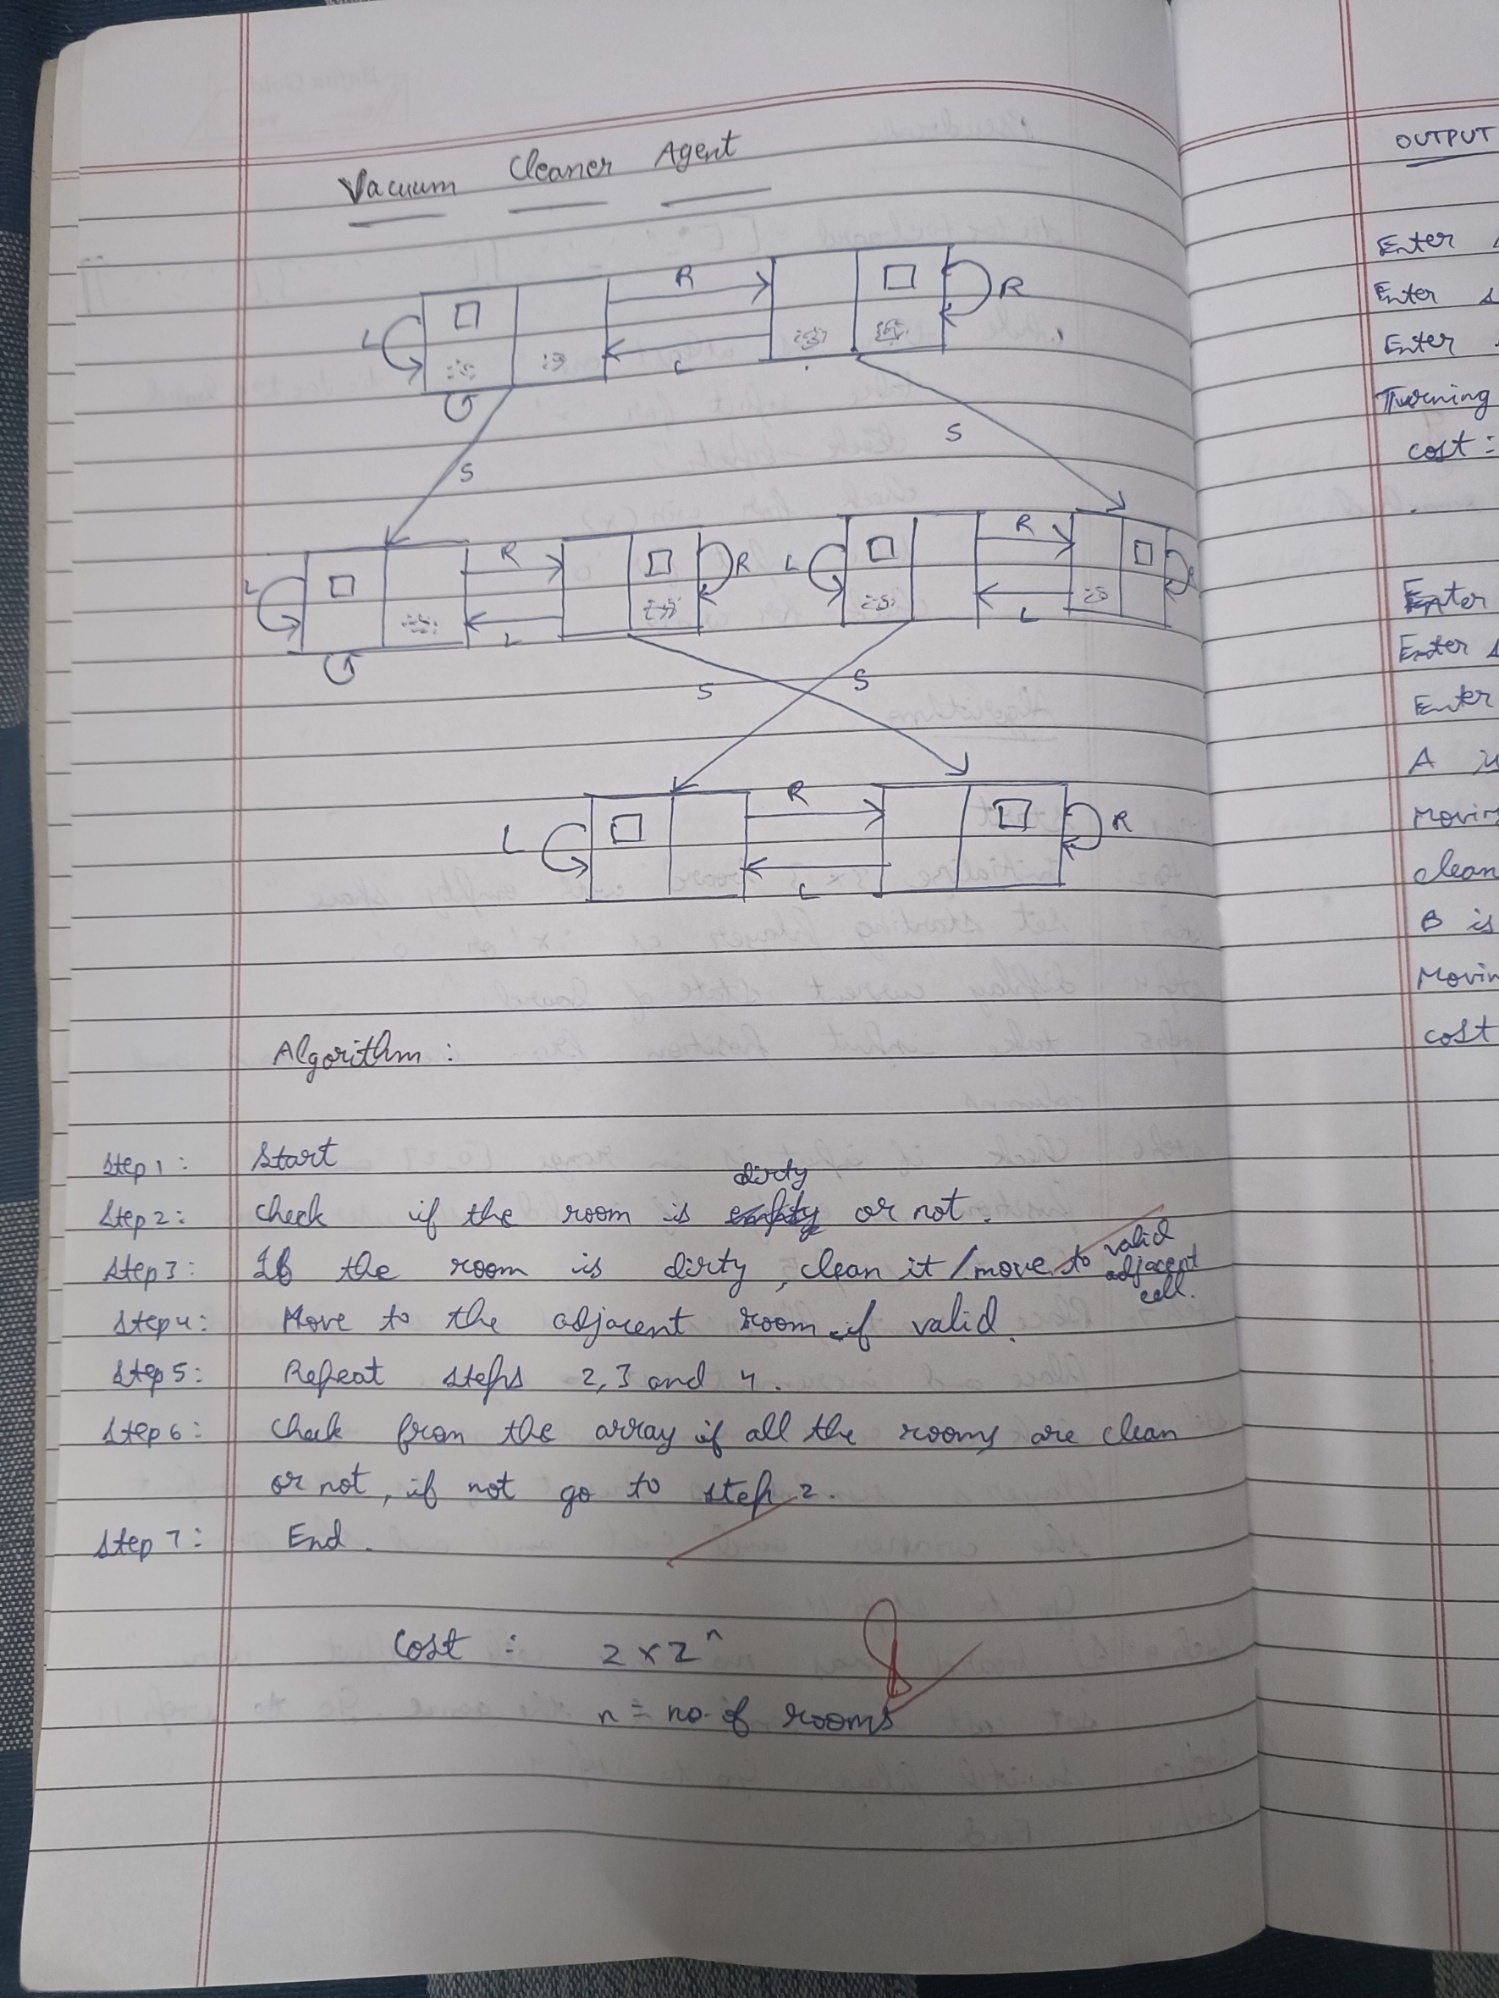 Vacuum Cleaner Agent
R
R
L
L
S
S
L
R
L
R
L
R
L
S
S
L
R
L
R
Algorithm :
Step 1 : Start
dirty
Step 2 : check if the room is empty or not.
Step 3 : If the room is dirty, clean it / move to valid adjacent cell.
Step 4 : Move to the adjacent room if valid.
Step 5 : Repeat steps 2, 3 and 4.
Step 6 : Check from the array if all the rooms are clean
or not, if not go to step 2.
Step 7 : End.
Cost : 2 x 2ⁿ
n = no. of rooms
OUTPUT
Enter
Enter
Enter
Turning
cost :
Enter
Enter
Enter
A is
Moving
clean
B is
Moving
cost